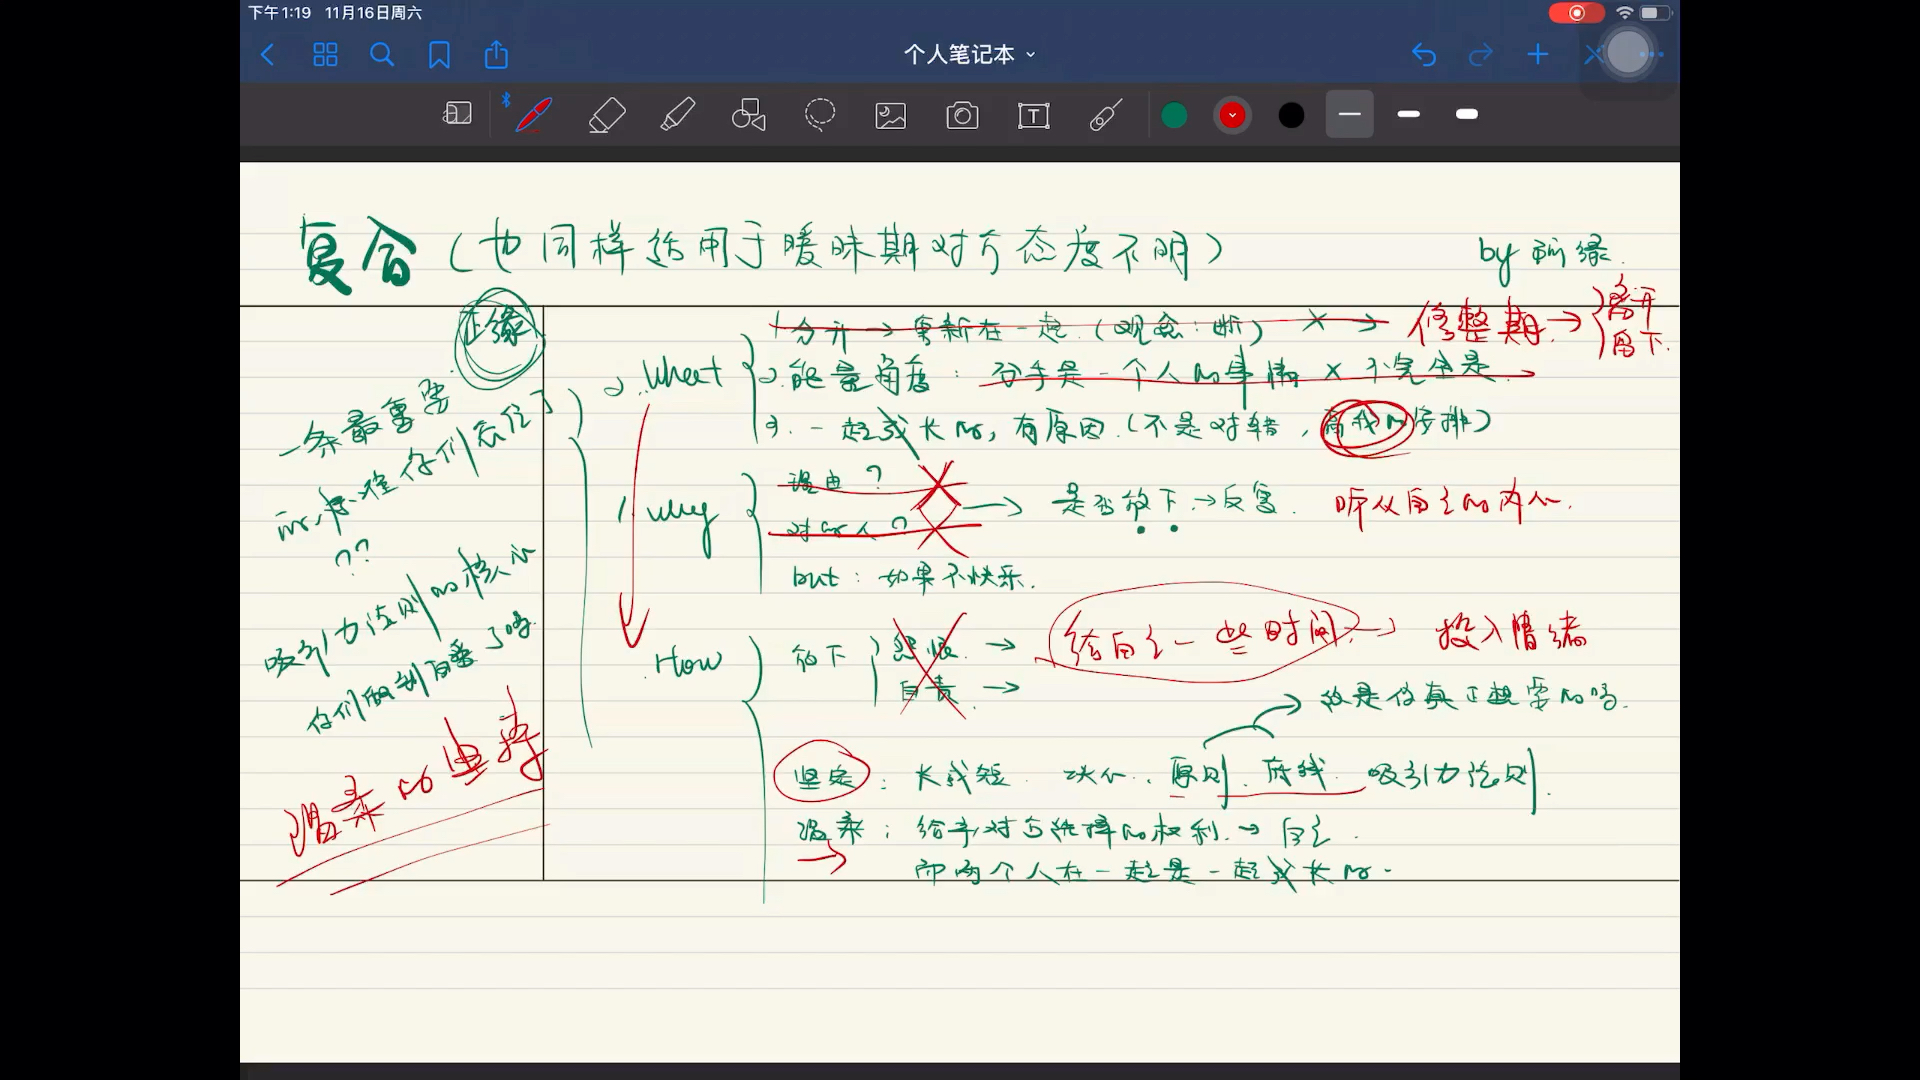 下午1:19 11月16日周六
个人笔记本
T
复合（也同样适用于暧昧期对方态度不明）
by 缘
正缘
一条最重要
你们忘记了
??
吸引力法则的核心
你们做到自爱了吗
温柔的坚持
2. What
1. 分开→重新在一起（观念：断） × → 修整期 → 离开 留下
2. 能量角度：分手是一个人的事情 × 不完全是
3. 一起成长的，有原因（不是对错，高我的安排）
1. Why
理由？
对的人？
→ 是否放下→反复 听从自己的内心
but：如果不快乐.
How
放下
怨恨 → 给自己一些时间 → 投入情绪
自责 →
→ 这是你真正想要的吗
坚定：长或短 决心、原则、底线 吸引力法则
温柔：给予对方选择的权利 → 自己
→ 而两个人在一起是一起成长的.